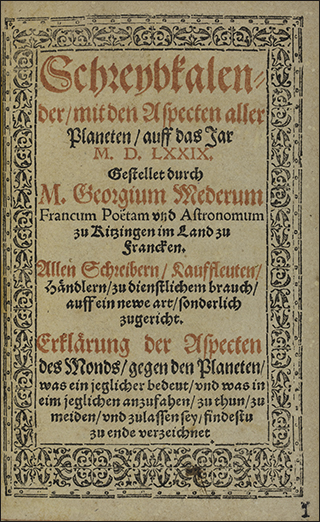 Schreybkalen-
der/ mit den Aspecten aller
Planeten/ auff das Jar
M. D. LXXIX.
Gestellet durch
M. Georgium Mederum
Francum Poëtam vnd Astronomum
zu Kitzingen im Land zu
Francken.
Allen Schreibern/ Kauffleuten/
Händlern/ zu dienstlichem brauch/
auff ein newe art/ sonderlich
zugericht.
Erklärung der Aspecten
des Monds/ gegen den Planeten/
was ein jeglicher bedeut/ vnd was in
eim jeglichen anzufahen/ zu thun/ zu
meiden/ vnd zulassen sey/ findestu
zu ende verzeichnet
1